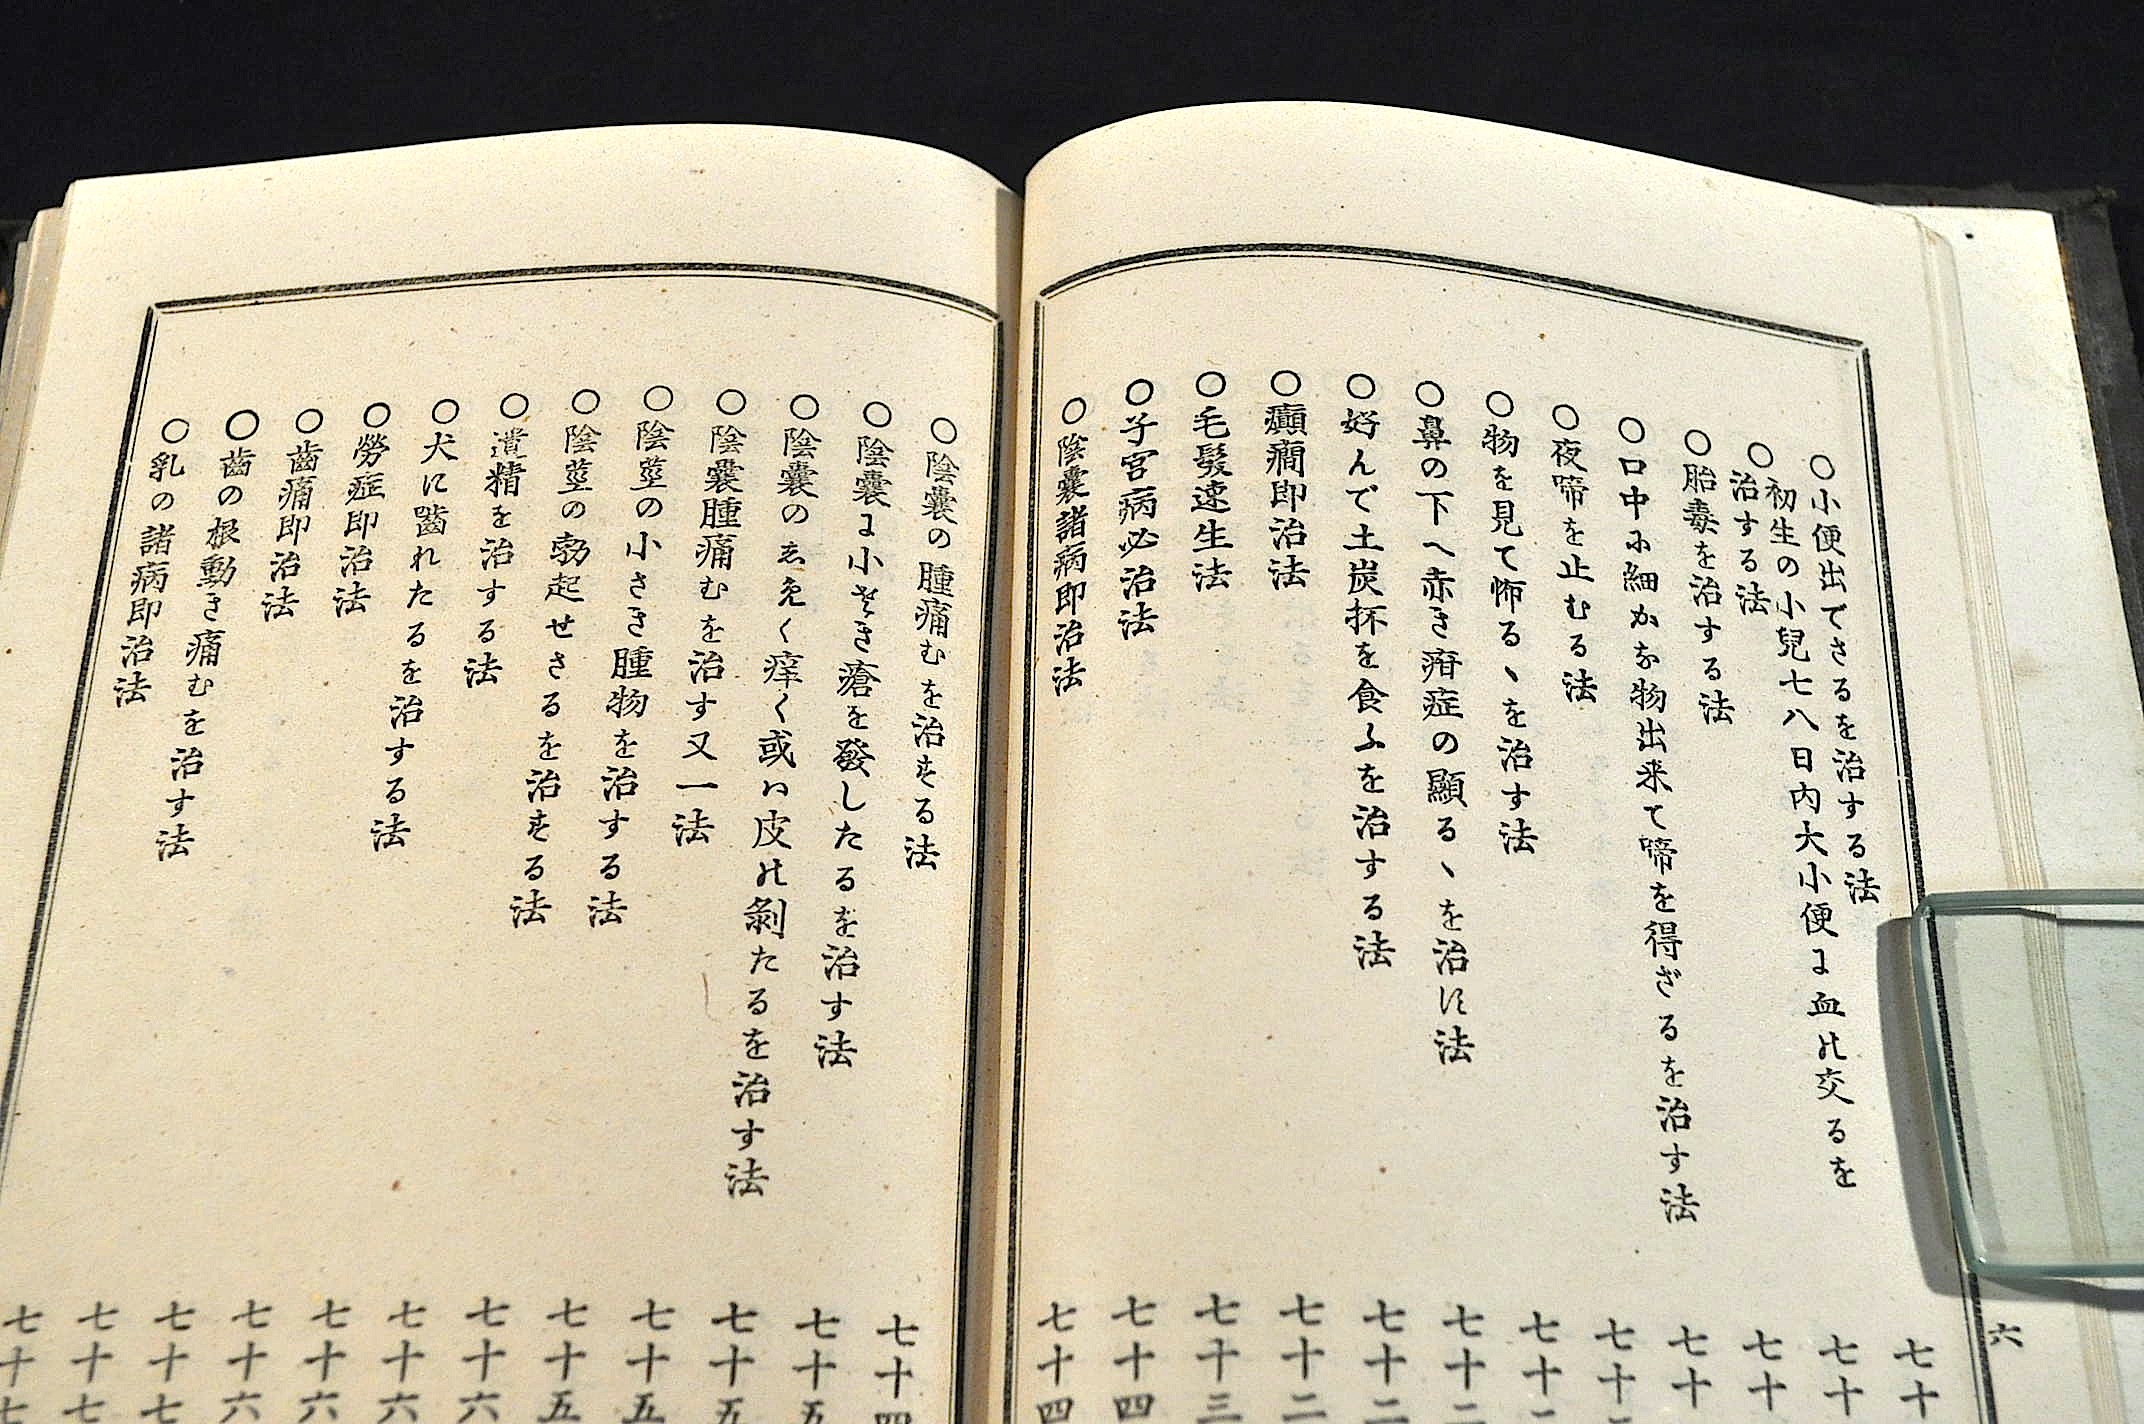 〇小便出でさるを治する法
〇初生の小兒七八日内大小便に血の交るを
治する法
〇胎毒を治する法
〇口中に細かな物出来て啼を得ざるを治す法
〇夜啼を止むる法
〇物を見て怖るヽを治す法
〇鼻の下へ赤き疳症の顯るヽを治す法
〇好んで土炭抔を食ふを治する法
〇癲癇即治法
〇毛髮速生法
〇子宮病必治法
〇陰嚢諸病即治法
七十
七十
七十
七十
七十
七十
七十二
七十二
七十二
七十三
七十四
七十四
六
〇陰嚢の腫痛むを治する法
〇陰嚢に小さき瘡を發したるを治す法
〇陰嚢のゑ免く痒く或は皮の剝たるを治す法
〇陰嚢腫痛むを治す又一法
〇陰莖の小さき腫物を治する法
〇陰莖の勃起せさるを治する法
〇遺精を治する法
〇犬に嚙れたるを治する法
〇勞症即治法
〇齒痛即治法
〇齒の根動き痛むを治す法
〇乳の諸病即治法
七十四
七十五
七十五
七十五
七十五
七十六
七十六
七十六
七十六
七十七
七十七
七十七